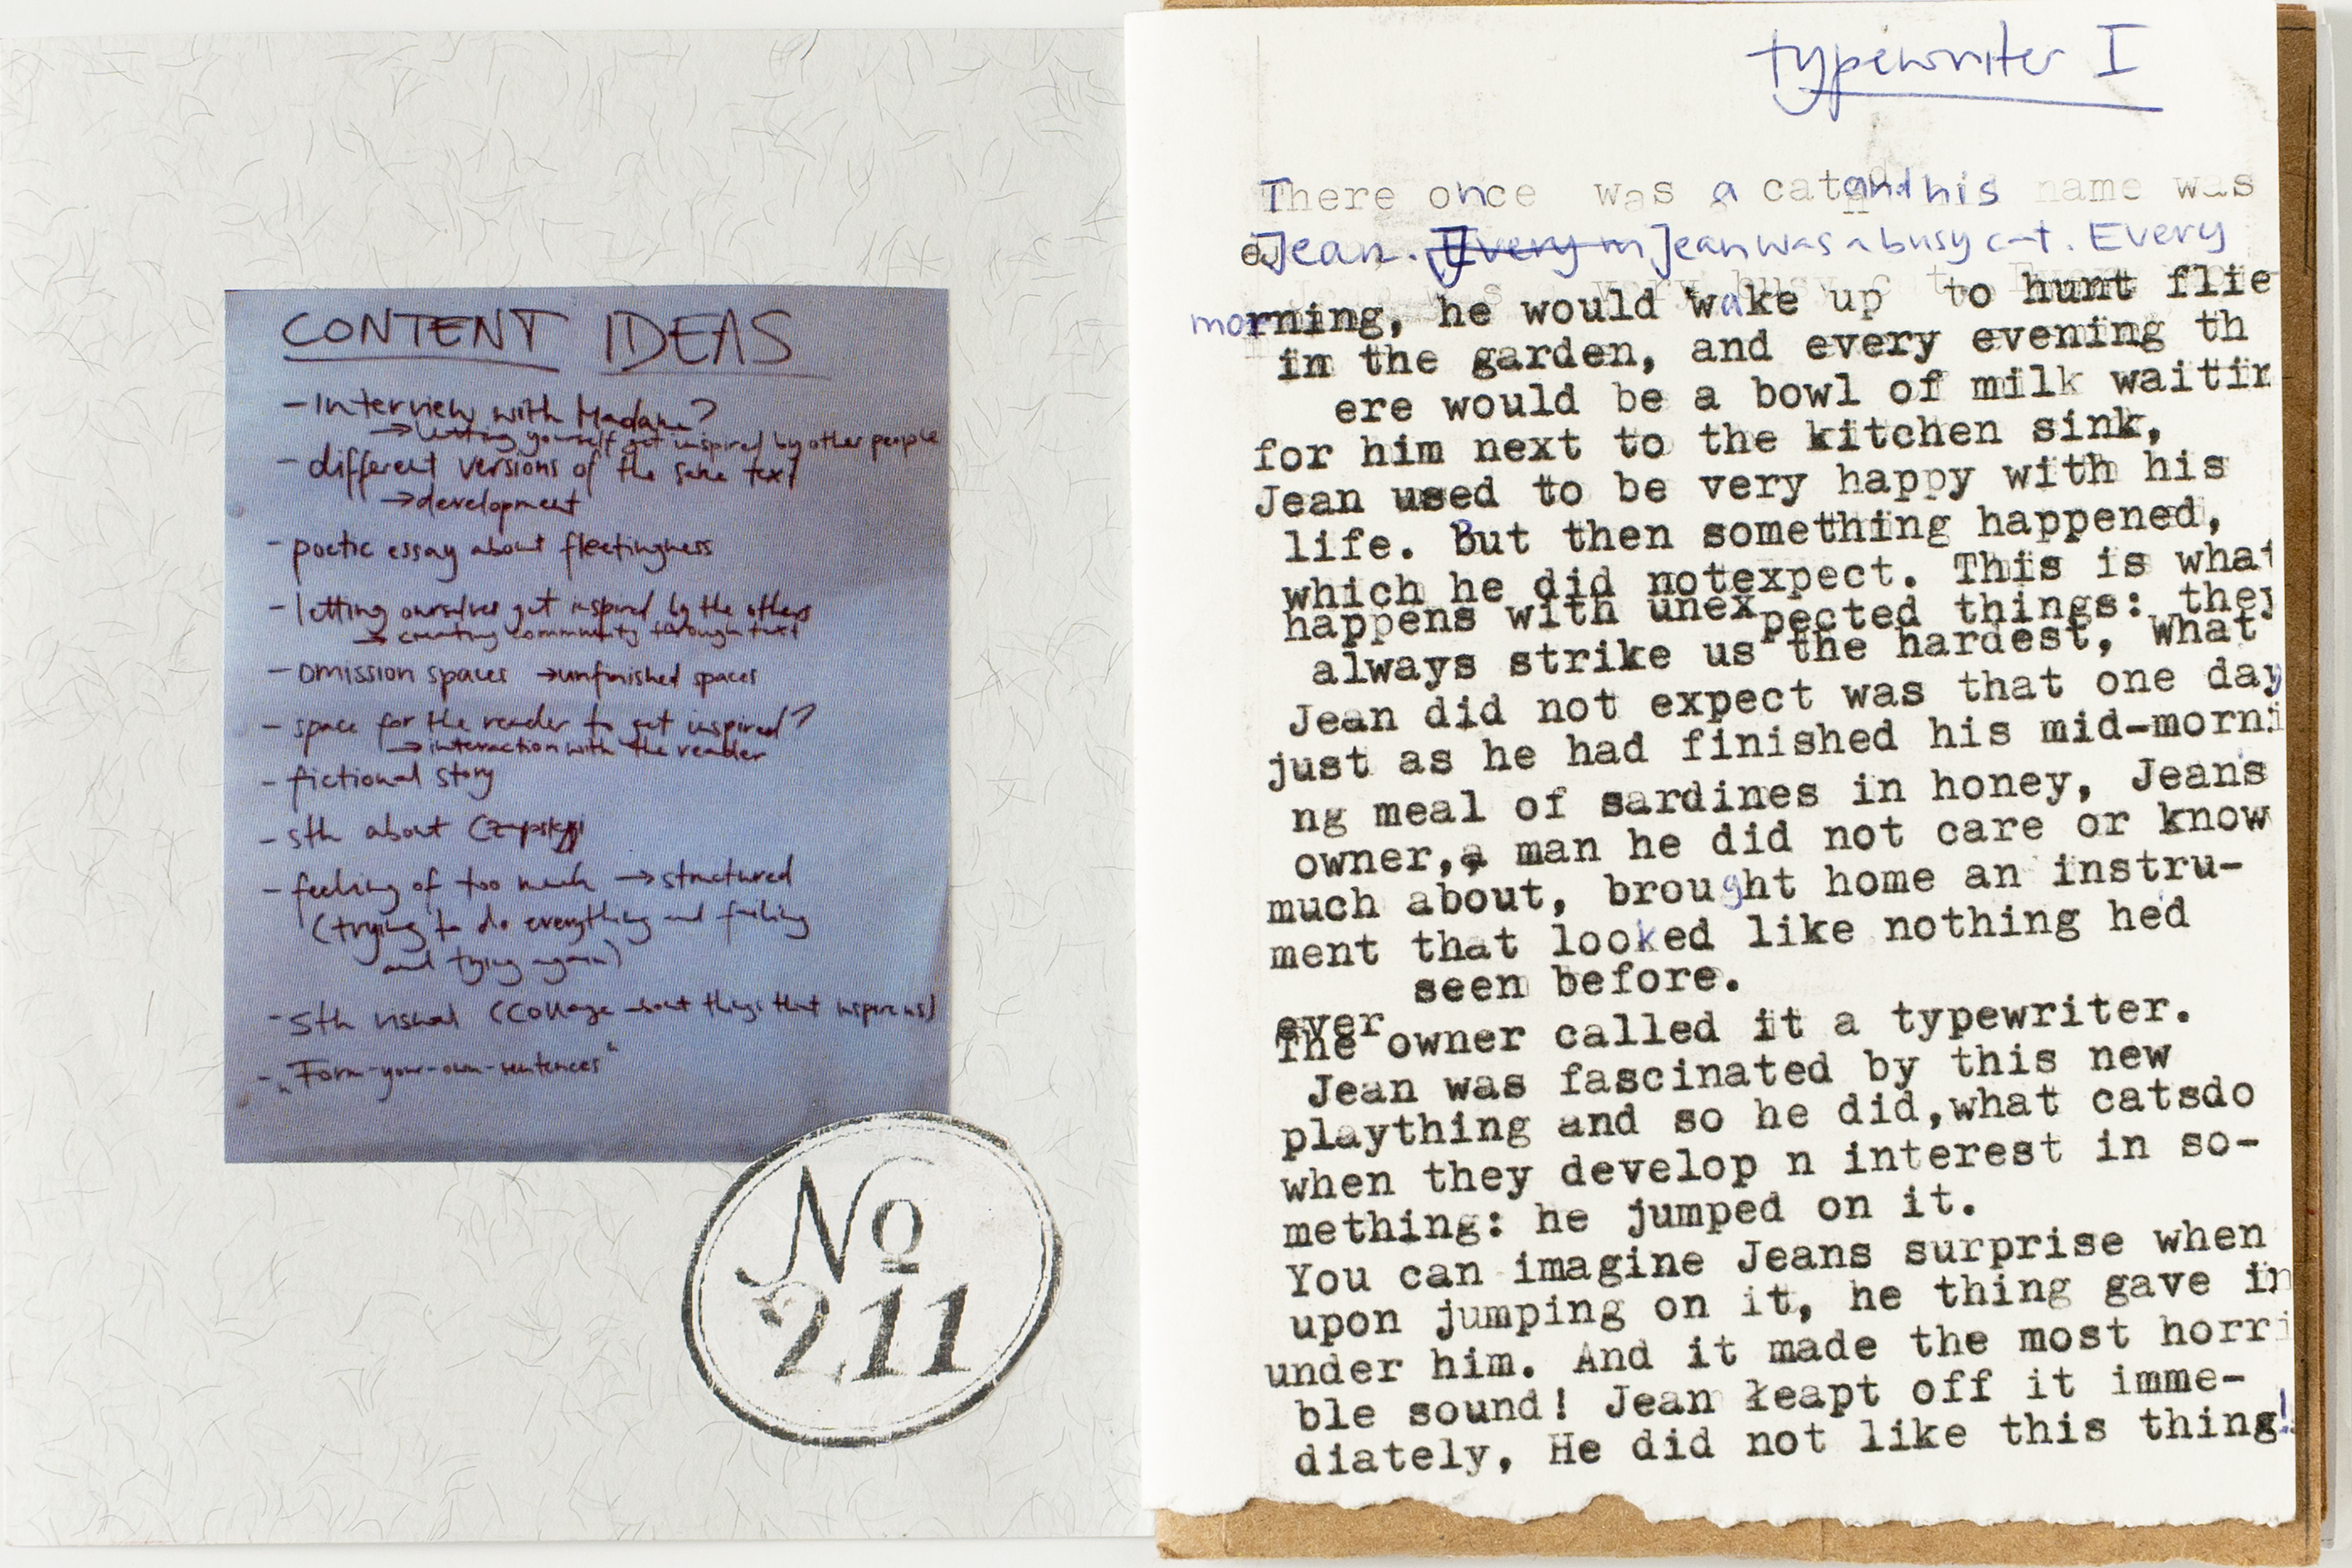 CONTENT IDEAS
- Interview with Madame?
→ letting yourself get inspired by other people
- different versions of the same text
→ development
- poetic essay about fleetingness
- letting ourselves get inspired by the others
→ creating community through text
- omission spaces → unfinished spaces
- space for the reader to get inspired?
→ interaction with the reader
- fictional story
- sth about
- feeling of too much → structured
(trying to do everything and failing
and trying again)
- sth visual (Collage about things that inspire us)
- „Form-your-own-sentences“
No
211
typewriter I
There once was a cat and his name was
Jean. Every m Jean was a busy cat. Every
morning, he would wake up to hunt flie
in the garden, and every evening th
ere would be a bowl of milk waitin
for him next to the kitchen sink,
Jean used to be very happy with his
life. But then something happened,
which he did notexpect. This is what
happens with unexpected things: they
always strike us the hardest, what
Jean did not expect was that one day
just as he had finished his mid-morni
ng meal of sardines in honey, Jean's
owner, a man he did not care or know
much about, brought home an instru-
ment that looked like nothing hed
seen before.
ever
The owner called it a typewriter.
Jean was fascinated by this new
plaything and so he did,what catsdo
when they develop n interest in so-
mething: he jumped on it.
You can imagine Jeans surprise when
upon jumping on it, he thing gave in
under him. And it made the most horri
ble sound! Jean leapt off it imme-
diately, He did not like this thing!